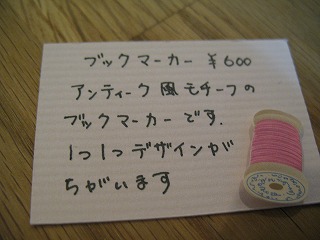 ブックマーカー ¥600
アンティーク風モチーフの
ブックマーカーです.
1つ1つデザインが
ちがいます